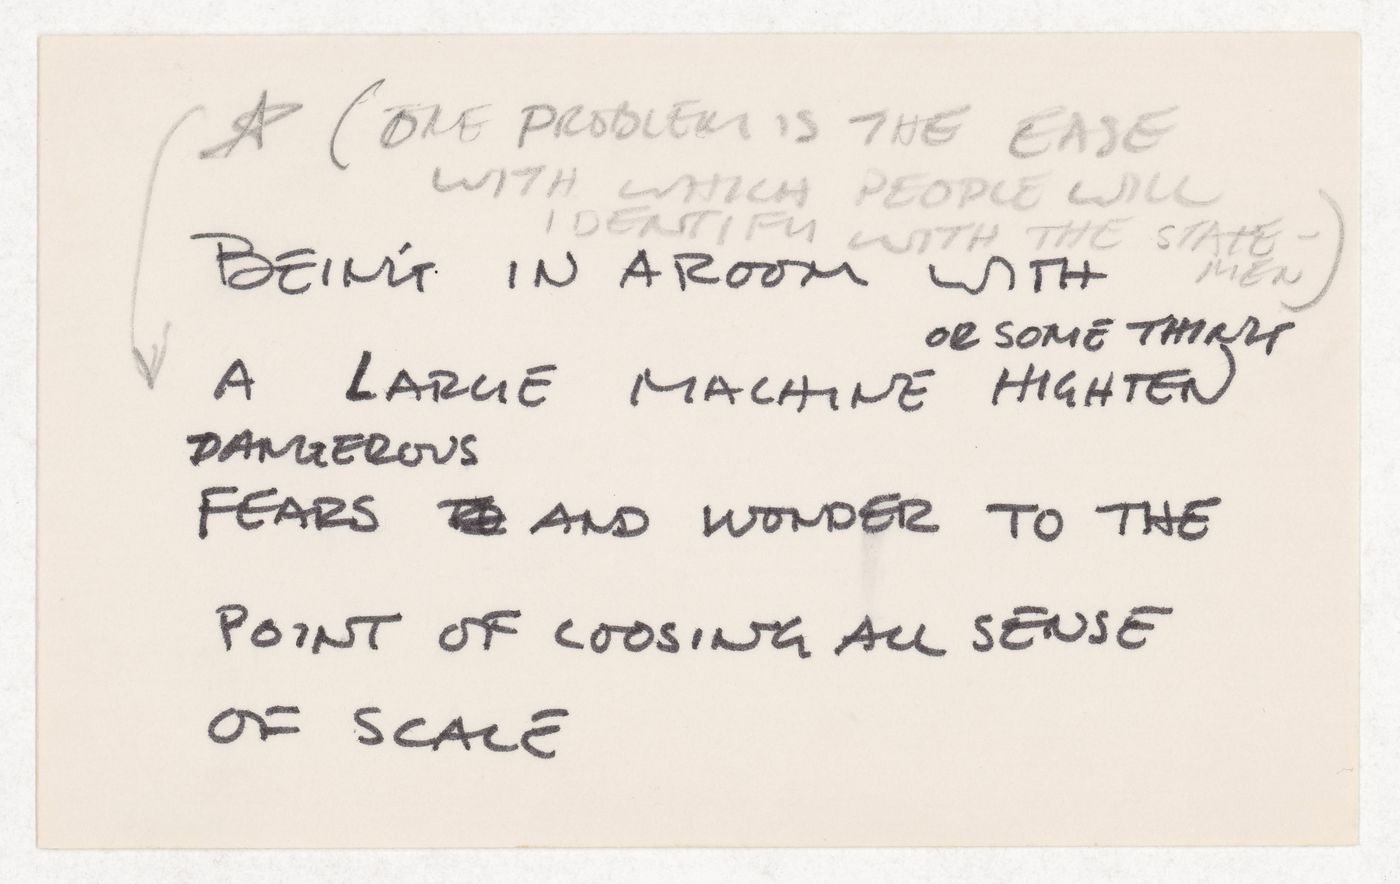 (ONE PROBLEM IS THE EASE
WITH WHICH PEOPLE WILL
IDENTIFY WITH THE STATE-
MEN)
BEING IN A ROOM WITH
OR SOME THING
A LARGE MACHINE HIGHTEN
DANGEROUS
FEARS AND WONDER TO THE
POINT OF LOOSING ALL SENSE
OF SCALE